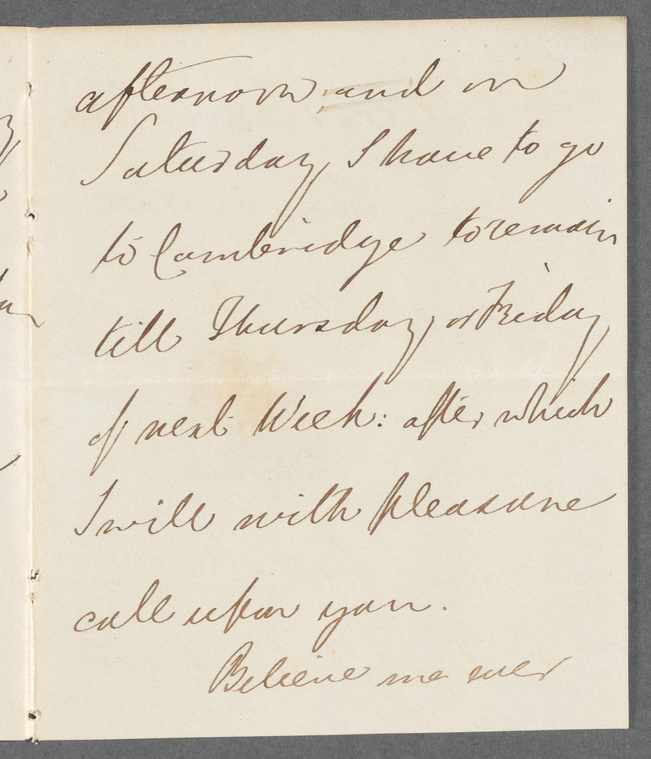 afternoon, and on
Saturday I have to go
to Cambridge to remain
till Thursday, or Friday
of next Week: after which
I will with pleasure
call upon you.
Believe me ever